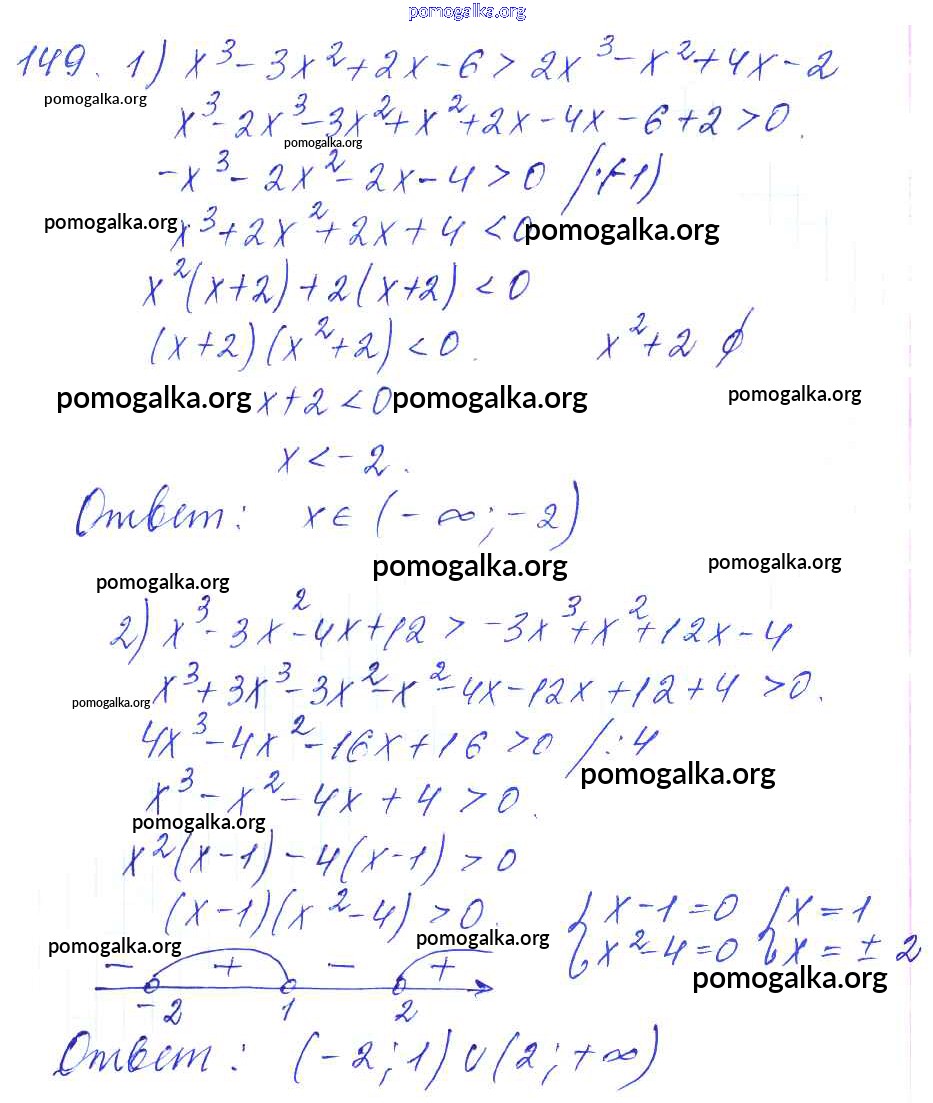 pomogalka.org
149. 1) x³ - 3x² + 2x - 6 > 2x³ - x² + 4x - 2
pomogalka.org
x³ - 2x³ - 3x² + x² + 2x - 4x - 6 + 2 > 0.
pomogalka.org
-x³ - 2x² - 2x - 4 > 0 /:(-1)
pomogalka.org x³ + 2x² + 2x + 4 < 0 pomogalka.org
x²(x+2) + 2(x+2) < 0
(x+2)(x²+2) < 0. x²+2 ∅
pomogalka.org x+2 < 0 pomogalka.org pomogalka.org
x < -2.
Ответ: x ∈ (-∞; -2)
pomogalka.org pomogalka.org pomogalka.org
2) x³ - 3x² - 4x + 12 > -3x³ + x² + 12x - 4
pomogalka.org x³ + 3x³ - 3x² - x² - 4x - 12x + 12 + 4 > 0.
4x³ - 4x² - 16x + 16 > 0 /:4
pomogalka.org
x³ - x² - 4x + 4 > 0.
pomogalka.org
x²(x-1) - 4(x-1) > 0
(x-1)(x²-4) > 0. { x-1=0 { x=1
x²-4=0 x=±2
pomogalka.org pomogalka.org pomogalka.org
- + - +
-2 1 2
Ответ: (-2; 1) ∪ (2; +∞)